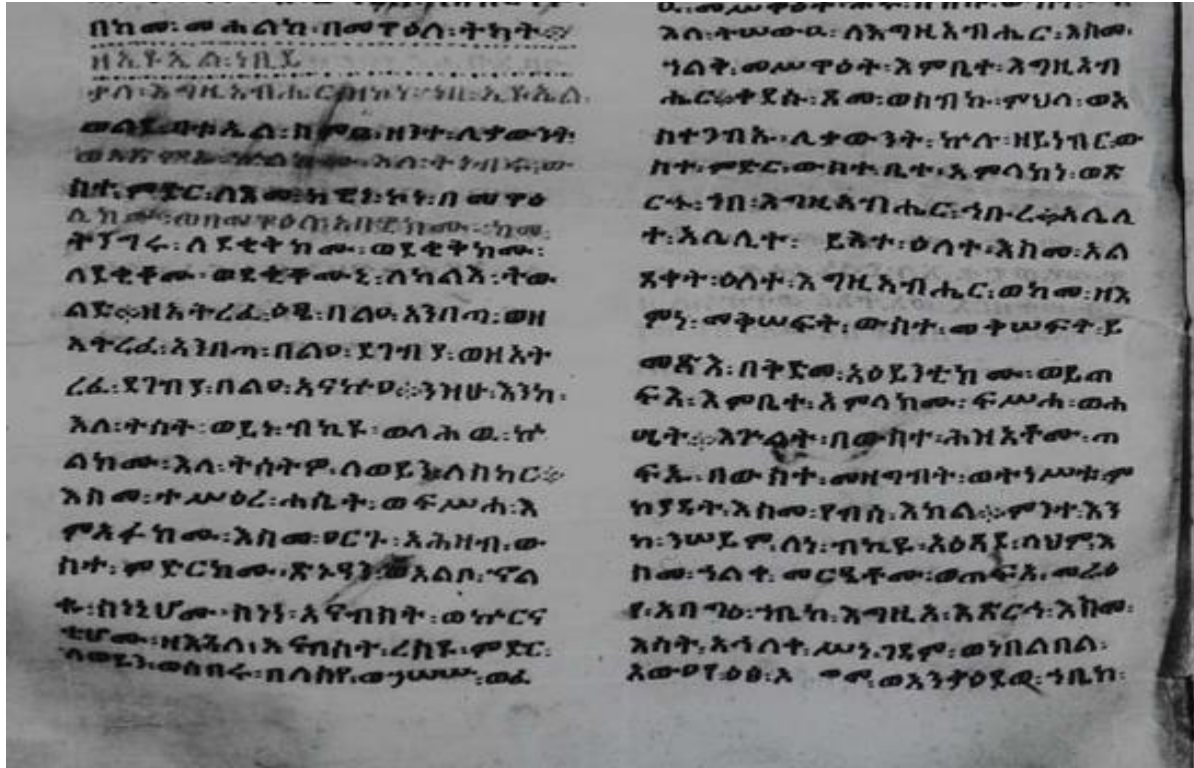 በከመ፡መሐልከ፡በመዋዕለ፡ትካት፨
ዘኢዩኤል፡ነቢይ
ቃለ፡እግዚአብሔር፡ዘኮነ፡ኀበ፡ኢዩኤል፡
ወልደ፡ባቱኤል፡ስምዑ፡ዘንተ፡ሊቃውንት፡
ወአጽምኡ፡ኵልክሙ፡እለ፡ትነብሩ፡ው
ስተ፡ምድር፡ለእመ፡ኮነ፡በመዋዕ
ሊክሙ፡ወበመዋዕለ፡አበዊክሙ፡ከመ፡
ትንግሩ፡ለደቂቅክሙ፡ወደቂቅክሙ፡
ለደቂቆሙ፡ወደቂቆሙኒ፡ለካልእ፡ትው
ልድ፨ዘአትረፈ፡ዕፄ፡በልዐ፡አንበጣ፡ወዘ
አትረፈ፡አንበጣ፡በልዐ፡ደጎብያ፡ወዘአት
ረፈ፡ደጎብያ፡በልዐ፡፨ንቅሁ፡እንከ፡
እለ፡ትሰትዩ፡ወይነ፡ብክዩ፡ወላሕዉ፡ኵ
ልክሙ፡እለ፡ትሰትዩ፡ለወይን፡ለስካር፨
እስመ፡ተሥዕረ፡ሐሴት፡ወፍሥሓ፡እ
ምአፉክሙ፡እስመ፡ዐርጉ፡አሕዛብ፡ው
ስተ፡ምድርክሙ፡ጽኑዓን፡ወአልቦ፡ኆል
ቈ፡ስነኒሆሙ፡ስነነ፡አናብስት፡ወኵርና
ቲሆሙ፡ዘእጓለ፡አናብስት፡ረሰዩ፡ምድር፡
ለወይንየ፡ወሰበሩ፡በለስየ፡ወኀሠሡ፡ወፈ
እለ፡ትሠውዑ፡ለእግዚአብሔር፡እስመ፡
ኀልቀ፡መሥዋዕት፡እምቤተ፡እግዚአብ
ሔር፨ቀድሱ፡ጾመ፡ወስብኩ፡ምህላ፡ወአ
ስተጋብኡ፡ሊቃውንት፡ኵሉ፡ዘይነብር፡ው
ስተ፡ምድር፡ውስተ፡ቤተ፡አምላክነ፡ወጽ
ርሑ፡ኀበ፡እግዚአብሔር፡ኅቡረ፨አሌሊ
ተ፡አሌሊተ፡ይእተ፡ዕለተ፡እስመ፡አል
ጸቀት፡ዕለተ፡እግዚአብሔር፡ወከመ፡ዘእ
ምነ፡መቅሠፍት፡ውስተ፡መቅሠፍት፡ይ
መጽእ፡በቅድመ፡አዕይንቲክሙ፡ወይጠ
ፍእ፡እምቤተ፡አምላክሙ፡ፍሥሓ፡ወሐ
ሤት፨እጐልት፡በውስተ፡ሕዝአቶሙ፡ጠ
ፍአ፡በውስተ፡መዛግብት፡ወተነሥቱ፡ም
ክያዳት፡እስመ፡የብሰ፡እክል፨ምንተ፡እን
ከ፡ንሠይም፡ለነ፡ብክዩ፡አዕጻደ፡ላህም፡እ
ስመ፡ኀልቀ፡መርዔቶሙ፡ወጠፍአ፡መራዕ
የ፡አባግዕ፡ኀቤከ፡እግዚእ፡እጸርኅ፡እስመ፡
እሳት፡አኅለቀ፡ሥነ፡ገዳም፡ወነበልባል፡
አውዐየ፡ዕፀ፡ወአንቃዕደወ፡ኀቤከ፡